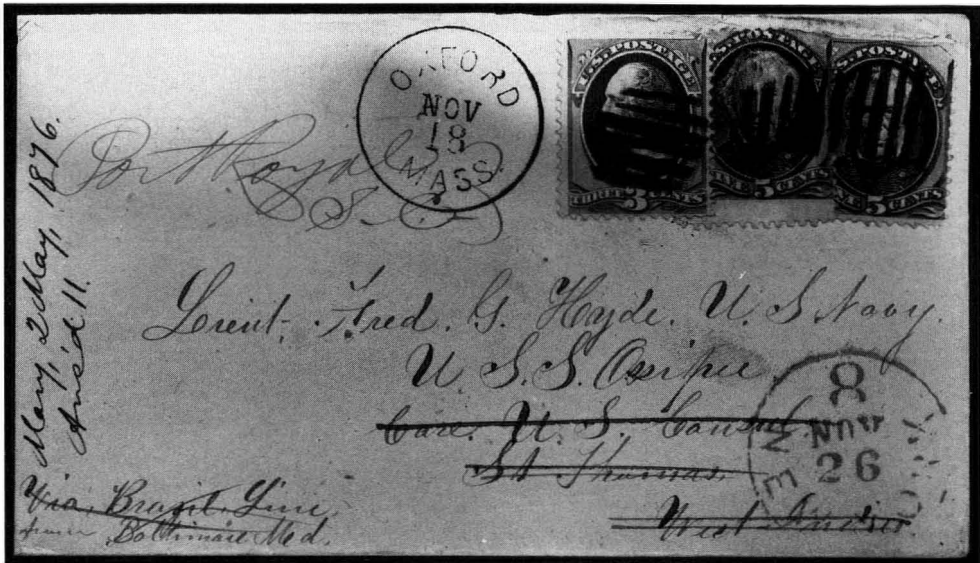 OXFORD
NOV
18
MASS.
U.S. POSTAGE
THREE 3 CENTS
U.S. POSTAGE
FIVE 5 CENTS
U.S. POSTAGE
FIVE 5 CENTS
Port Royal
S.C.
Lieut. Fred. G. Hyde. U. S Navy.
U. S. S. Ossipee
Care. U. S. Consul
St Thomas
West Indies
8
NOV
26
NEW YORK
Via. Brazil Line
Baltimore Md.
May, 1876.